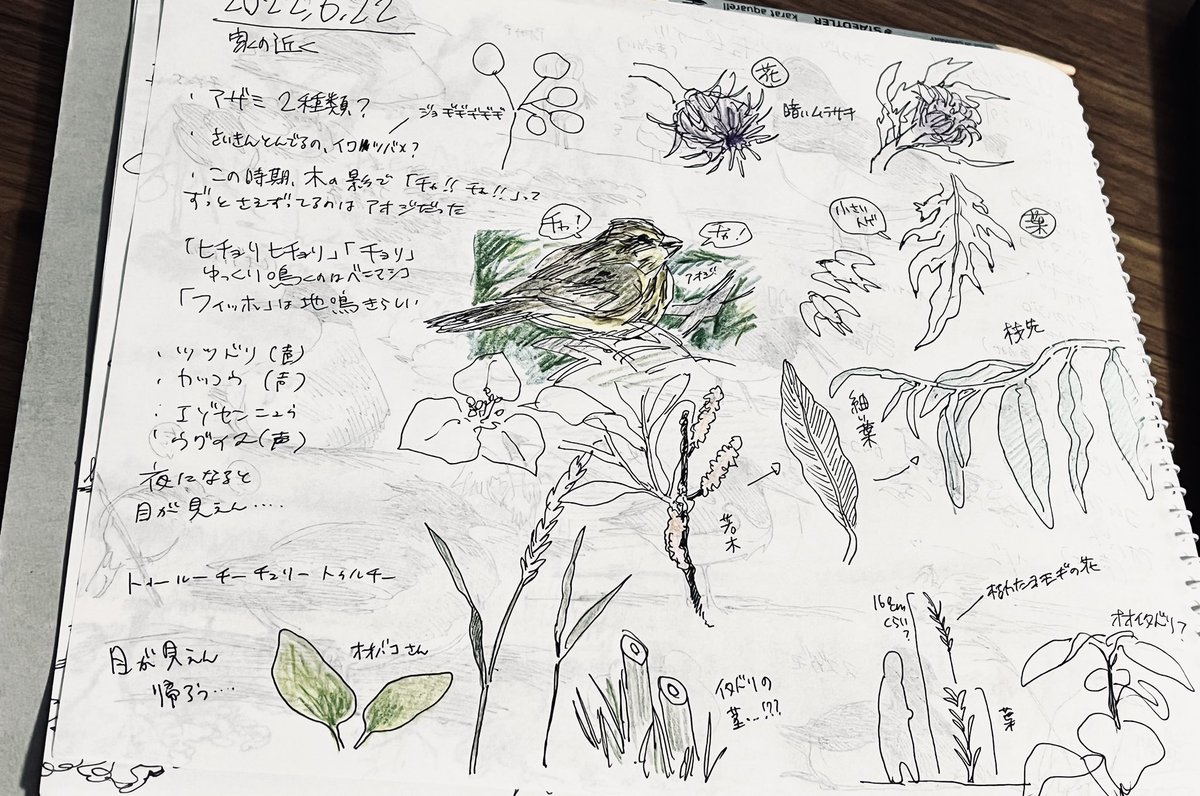 2022.6.22
家の近く
・アザミ 2種類?
・さいきんとんでるの、イワツバメ?
ジョギギギギギ
・この時期、木の影で「チャ!! チャ!!」って
ずっとさえずってるのはアオジだった
「ヒチョリ ヒチョリ」「チョリ」
ゆっくり鳴くのはベニマシコ
「フィッホ」は地鳴きらしい
・ツツドリ(声)
・カッコウ(声)
・エゾセンニュウ
・ウグイス(声)
夜になると
目が見えん....
トゥールーチーチュリートゥルチー
目が見えん
帰ろう....
オオバコさん
チャ!
チャ!
アオジ
花
暗いムラサキ
小さい
トゲ
葉
枝先
細い葉
若木
イタドリの
茎...!??
16cm
くらい?
枯れたヨモギの花
葉
オオイタドリ?
STAEDTLER
karat aquarell